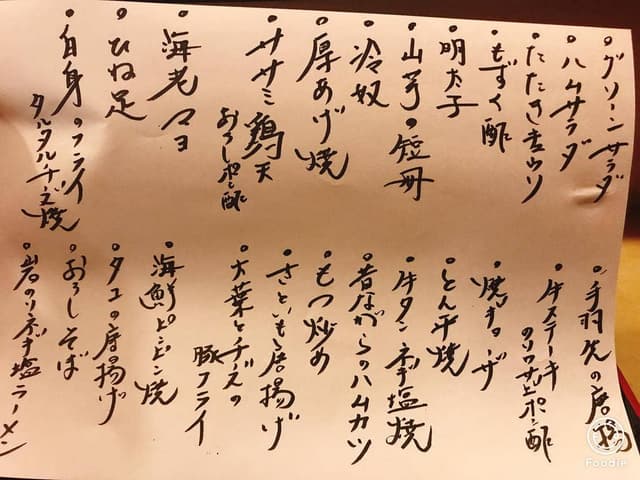 • グリーンサラダ
• ハムサラダ
• たたきキュウリ
• もずく酢
• 明太子
• 山芋の短冊
• 冷奴
• 厚あげ焼
• ササミ鶏天
おろしポン酢
• 海老マヨ
• ひね足
• 白身のフライ
タルタルチーズ焼
• 手羽先の唐揚
• 牛ステーキ
のりわさびポン酢
• 焼ギョーザ
• とん平焼
• 牛タンネギ塩焼
• 昔ながらのハムカツ
• もつ炒め
• さといも唐揚げ
• 大葉とチーズの
豚フライ
• 海鮮ビビン焼
• タコの唐揚げ
• おろしそば
• 岩のりネギ塩ラーメン
Foodie